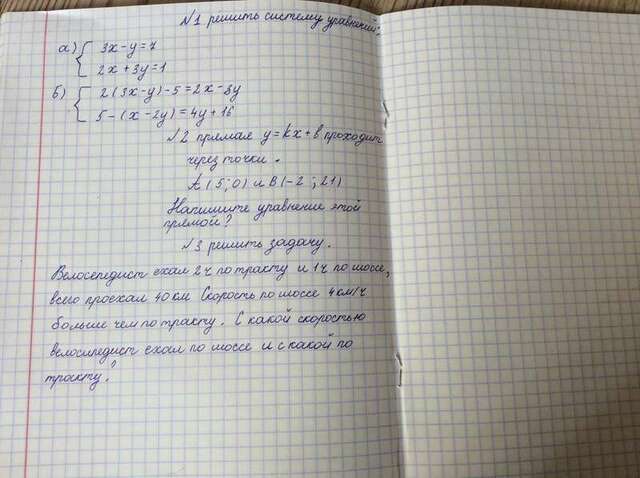 N1 решить систему уравнений.
а) { 3x-y=7
2x+3y=1
б) { 2(3x-y)-5=2x-3y
5-(x-2y)=4y+16
N2 прямая y=kx+b проходит
через точки.
A(5;0) и B(-2;21)
Напишите уравнение этой
прямой?
N3 решить задачу.
Велосепедист ехал 2ч по тракту и 1ч по шоссе,
всего проехал 40км Скорость по шоссе 4км/ч
больше чем по тракту. С какой скоростью
велосипедист ехал по шоссе и с какой по
тракту?